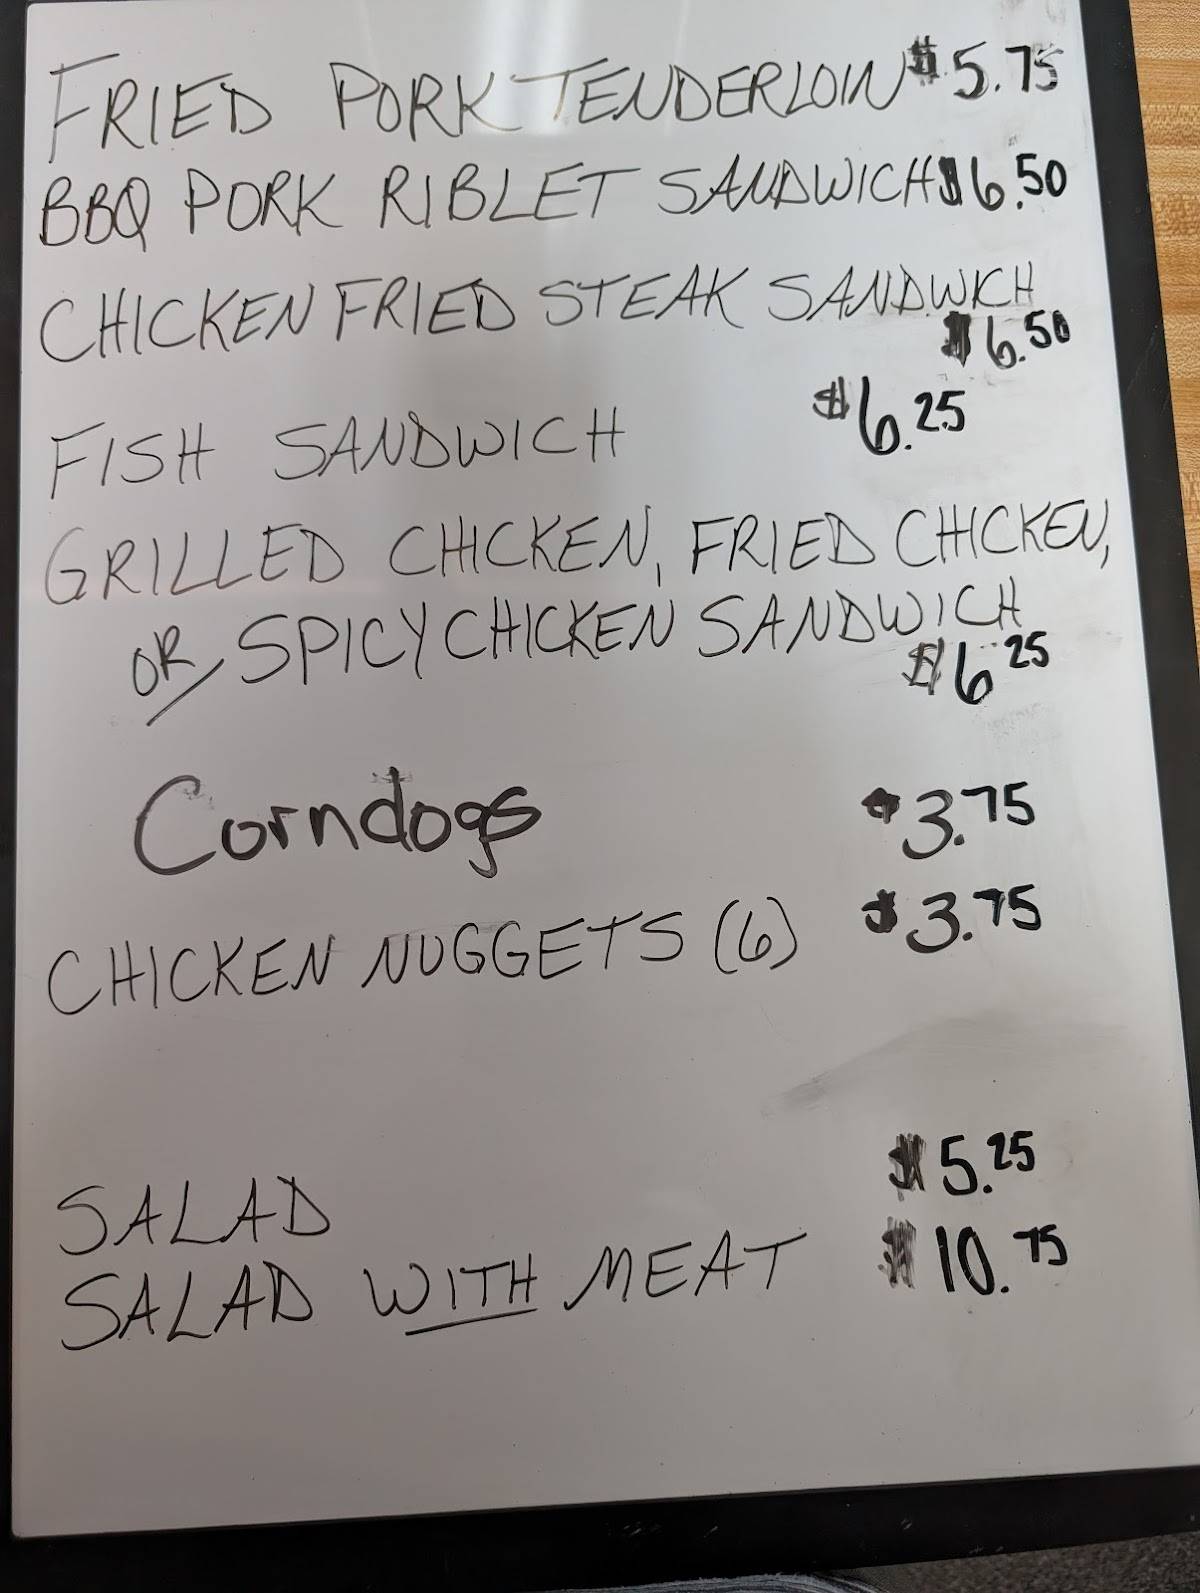 FRIED PORK TENDERLOIN $5.75
BBQ PORK RIBLET SANDWICH $6.50
CHICKEN FRIED STEAK SANDWICH
$6.50
FISH SANDWICH $6.25
GRILLED CHICKEN, FRIED CHICKEN,
OR SPICY CHICKEN SANDWICH
$6.25
Corndogs $3.75
CHICKEN NUGGETS (6) $3.75
SALAD $5.25
SALAD WITH MEAT $10.75